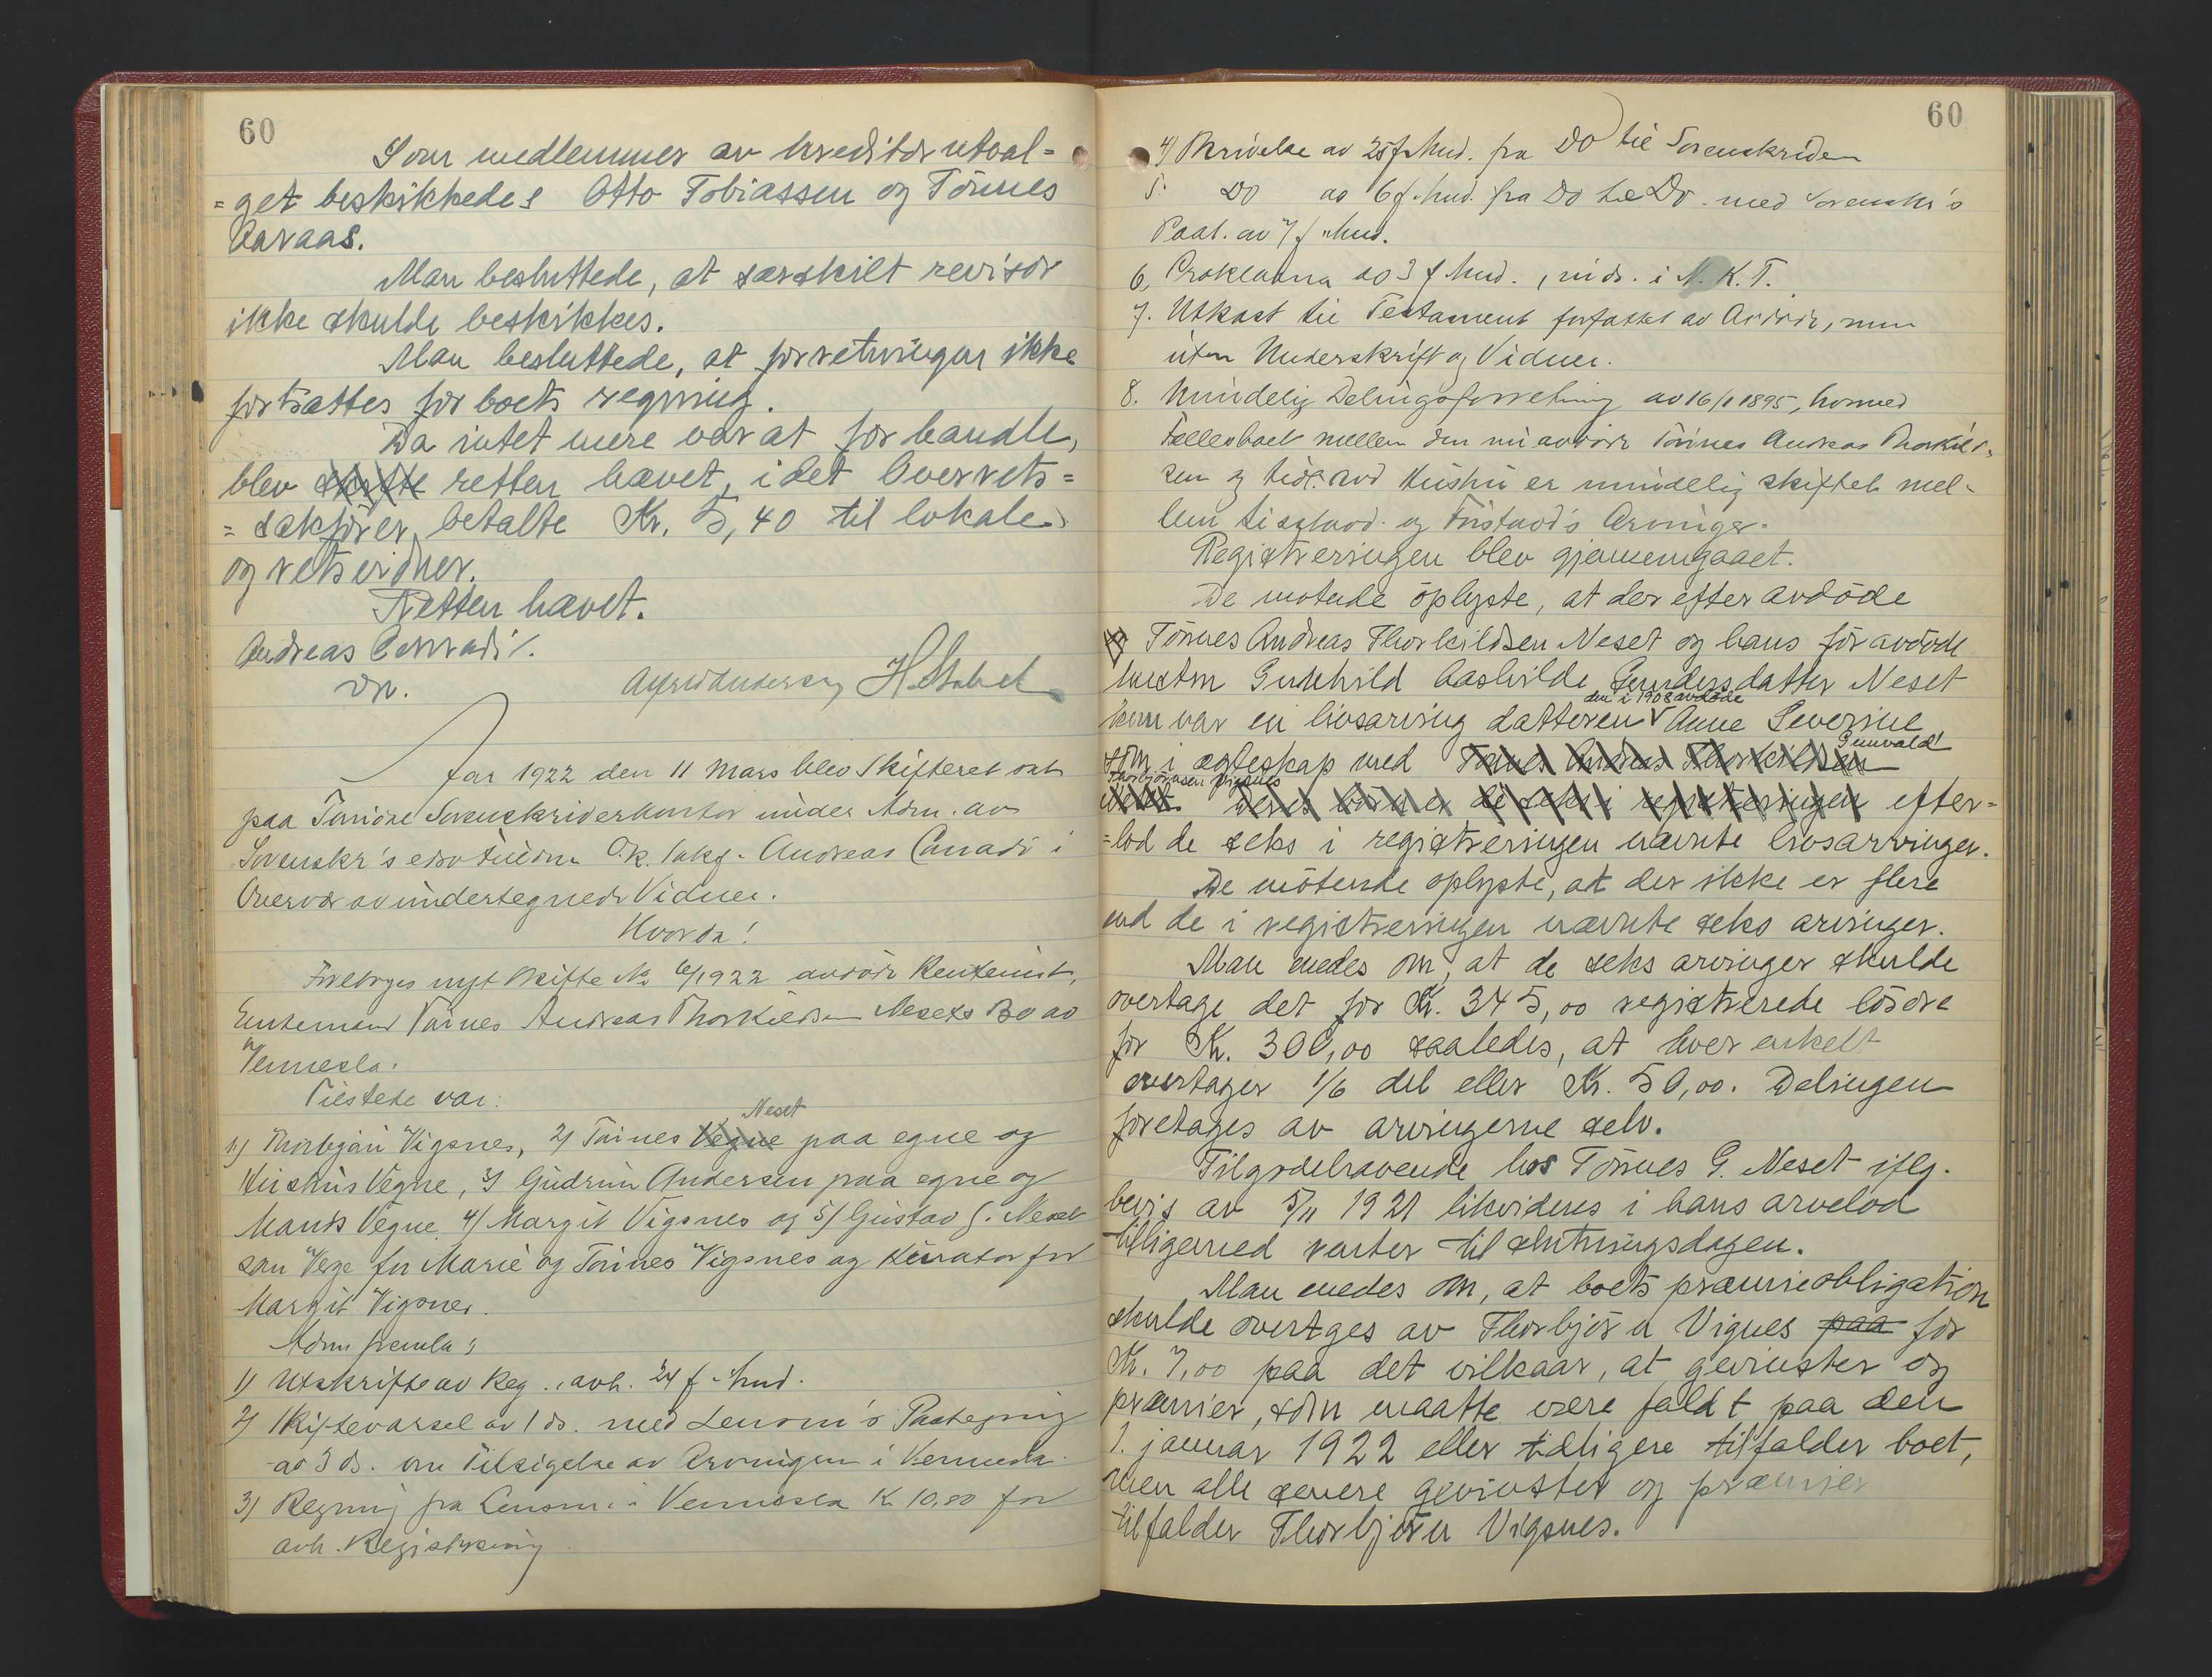 60
Som medlemmer av kreditorutval=
=get beskikkedes Otto Tobiassen og Tönnes
Aaraas.
Man besluttede, at særskilt revisor
ikke skulde beskikkes.
Man besluttede, at forretningen ikke
fortsættes for boets regning.
Da intet mere var at forhandle,
blev skifte retten hævet, idet Overrets=
=sakfører betalte Kr. 5,40 til lokale
og retsvidner.
Retten hævet.
Andreas Conradi
Alfred Andersen H. Stabel
Aar 1922 den 11 Mars blev Skifteret sat
paa Torridal Sorenskriverkontor under Adm. av
Sorenskr's edsv fuldm O.r. sakf. Andreas Conradi i
Overvær av undertegnede Vidner.
Hvorda!
Foretoges nyt Skifte No 6/1922 avdöde Rentenist,
Enkemand Tönnes Andreas Thorkildsen Nesets Bo av
Vennesla.
Tilstede var:
1) Thorbjörn Vigsnes, 2) Tönnes Vegne Neset paa egne og
Hustrus Vegne, 3) Gudrun Andersen paa egne og
Mands Vegne, 4) Margit Vigsnes og 5) Gustav G. Neset
som Verge for Marie og Tönnes Vigsnes og Kurator for
Margit Vigsnes.
Adm fremla:
1) Utskrift av Reg. avh. 24 f. Mnd.
2) Skiftevarsel av 1 ds. med Lensm's Paategning
av 3 ds. om Tilsigelse av Arvingen i Vennesla.
3) Regning fra Lensm. i Vennesla Kr 10,80 for
avh. Registrering
60
4) Skrivelse av 25 f. Mnd. fra Do til Sorenskriveren
5. Do av 6 f. Mnd. fra Do til Do. med Sorenskr's
Paat. av 7 f. Mnd.
6, Proklama av 3 f Mnd., inds. i N. K. T.
7. Utkast til Testament forfattet av Avdöde, men
uten Underskrift og Vidner.
8. Mindelig Delingsforretning av 16/1 1895, hvorved
Fællesboet mellem den nu avdöde Tönnes Andreas Thorkild-
sen og tidl. avd Hustru er mindelig skiftet mel-
lem og Arvinger.
Registreringen blev gjennemgaaet.
De møtende oplyste, at der efter avdöde
Tönnes Andreas Thorkildsen Neset og hans før avdöde
hustru Gunhild Aashilde Gundersdatter Neset
kun var en livsarving datteren den i 1908 avdöde Anne Severine
som i ægteskap med Tönnes Andreas Thorkildsen Gunvald
Thorbjörnsen Vigsnes Neset. Deres börn er de seks i registreringen efter=
=lod de seks i registreringen nævnte livsarvinger.
De møtende oplyste, at der ikke er flere
end de i registreringen nævnte seks arvinger.
Man enedes om, at de seks arvinger skulde
overtage det for Kr. 345,00 registrerede lösöre
for Kr. 300,00 saaledes, at hver enkelt
overtager 1/6 del eller Kr. 50,00. Delingen
foretages av arvingerne selv.
Tilgodehavende hos Tönnes G. Neset iflg.
bevis av 5/11 1921 likvideres i hans arvelod
tilligemed renter til slutningsdagen.
Man enedes om, at boets præmieobligation
skulde overtges av Thorbjör n Vignes paa for
Kr. 7,00 paa det vilkaar, at gevinster og
præmier, som maatte være faldt paa den
1. januar 1922 eller tidligere tilfalder boet,
men alle senere gevinster og præmier
tilfalder Thorbjørn Vigsnes.